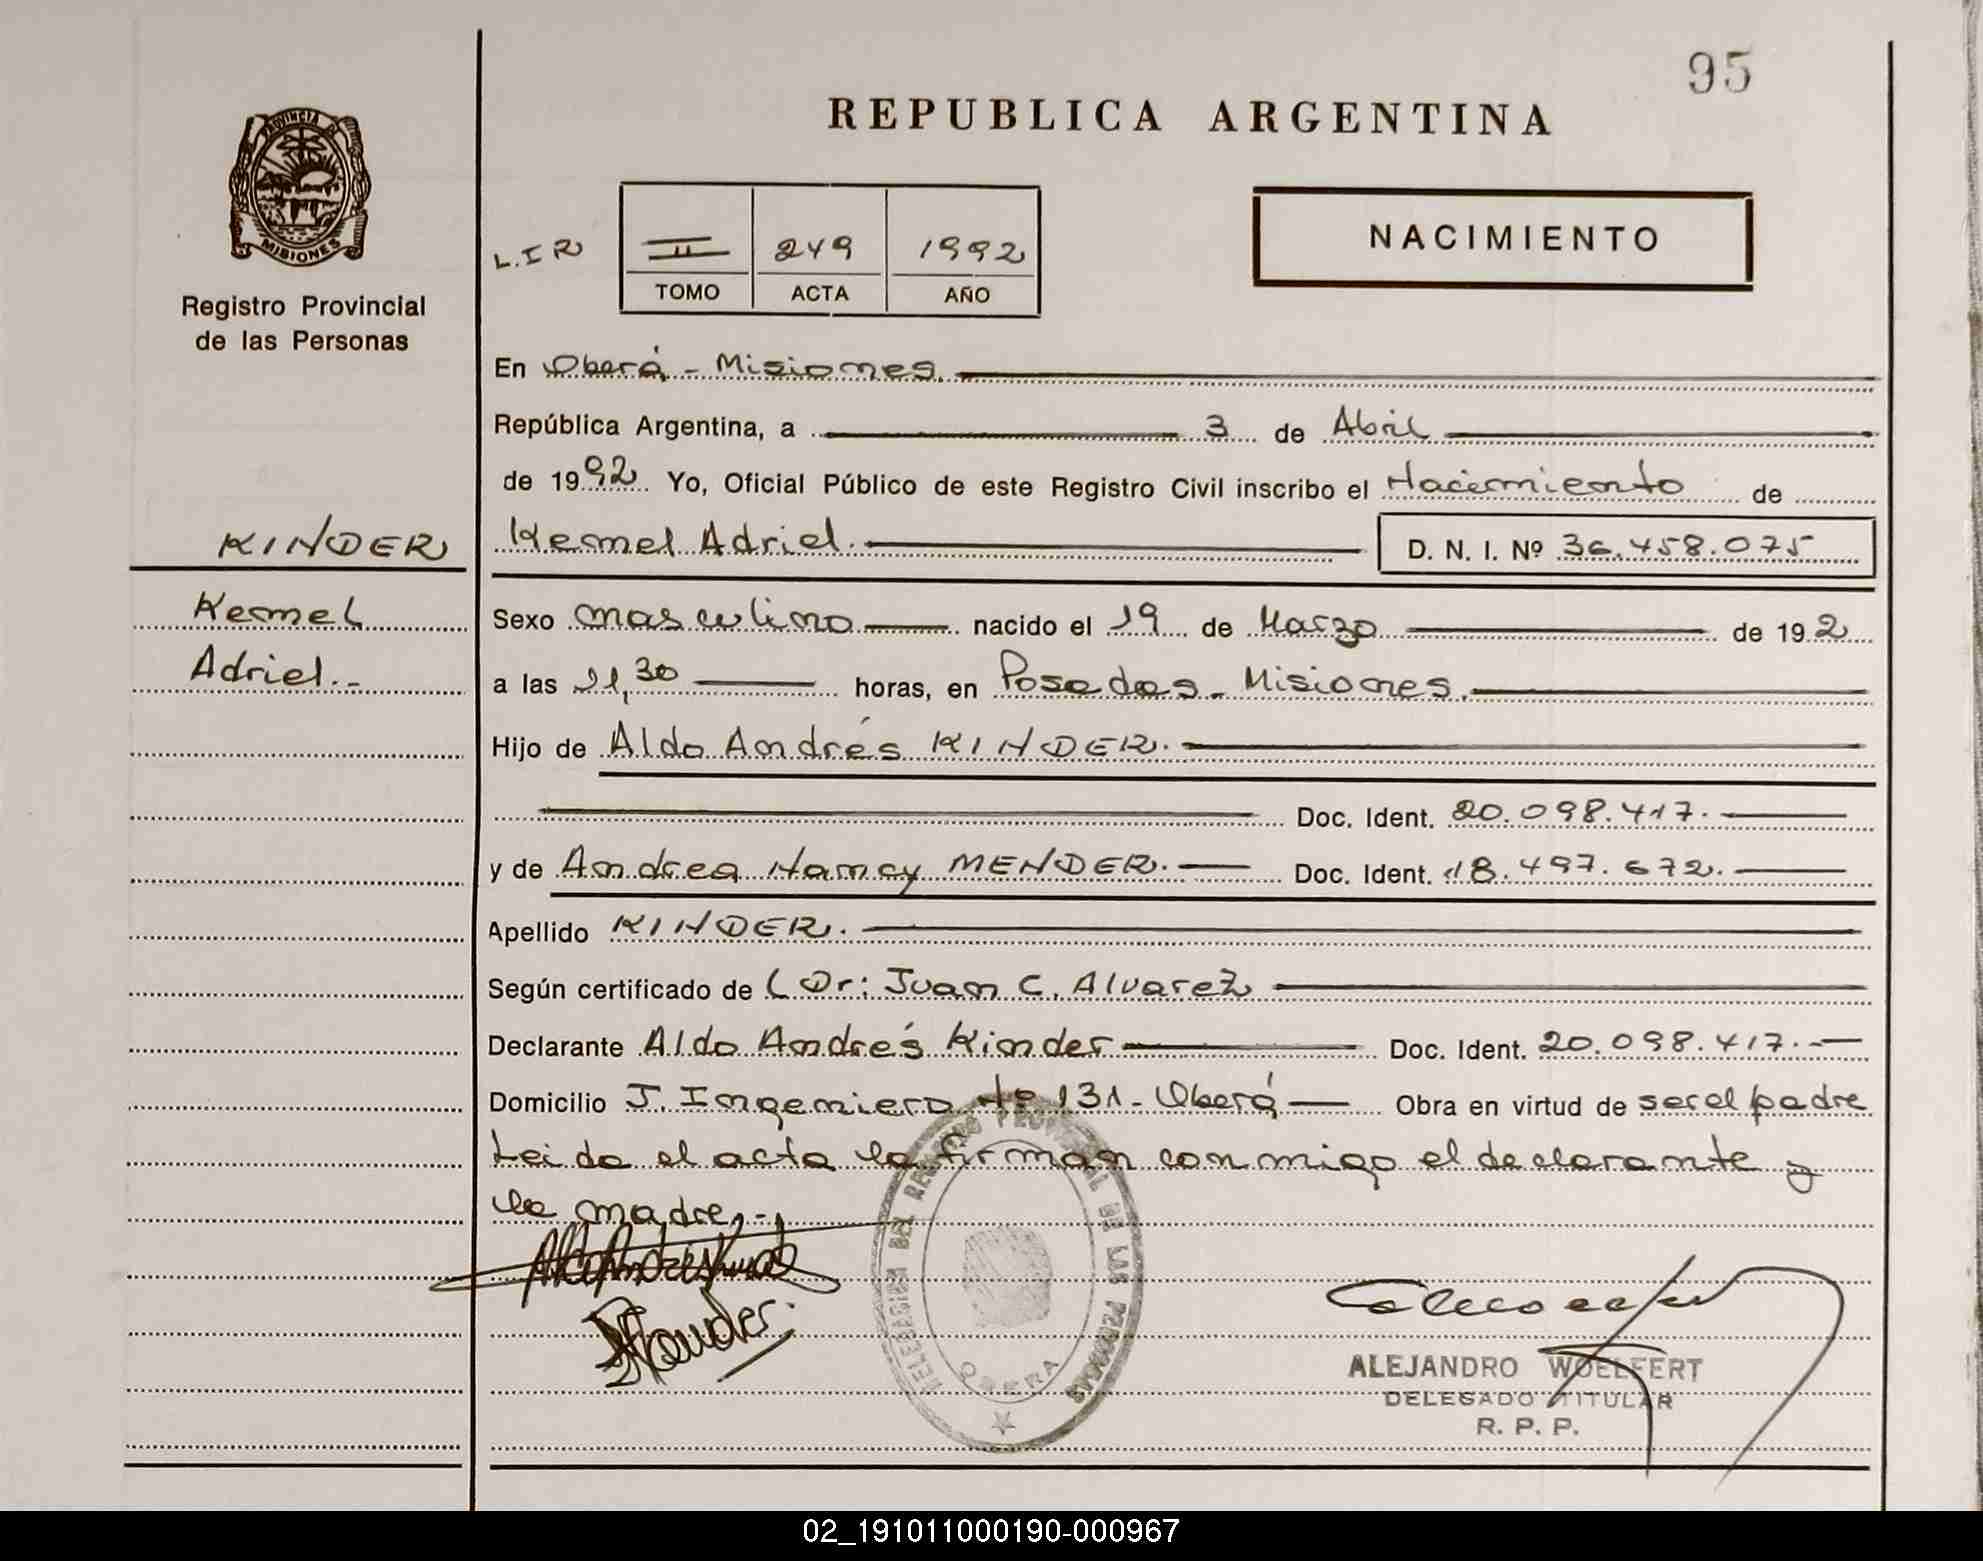 95
REPUBLICA ARGENTINA
PROVINCIA DE
MISIONES
Registro Provincial
de las Personas
L. I R
II 249 1992
TOMO ACTA AÑO
NACIMIENTO
En Oberá - Misiones.
República Argentina, a 3 de Abril
de 1992 Yo, Oficial Público de este Registro Civil inscribo el Nacimiento de
KINDER
Kemel Adriel.
D. N. I. Nº 36.458.075
Kemel
Adriel.-
Sexo masculino nacido el 19 de Marzo de 19 2
a las 21,30 horas, en Posadas - Misiones.
Hijo de Aldo Andrés KINDER.
Doc. Ident. 20.098.417.
y de Andrea Nancy MENDER. Doc. Ident. 18.497.672.
Apellido KINDER.
Según certificado de L Dr: Juan C. Alvarez
Declarante Aldo Andrés Kinder Doc. Ident. 20.098.417.-
Domicilio J. Ingeniero Nº 131 - Oberá Obra en virtud de ser el padre
Leida el acta la firman conmigo el declarante y
la madre.-
DELEGACION DEL REGISTRO PROVINCIAL DE LAS PERSONAS
OBERA
ALEJANDRO WOELFERT
DELEGADO TITULAR
R. P. P.
02_191011000190-000967